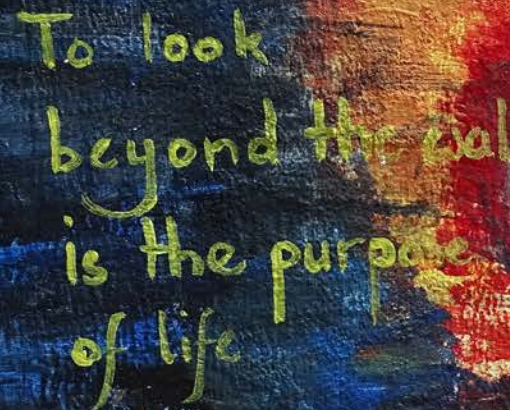 To look
beyond the wal
is the purpose
of life